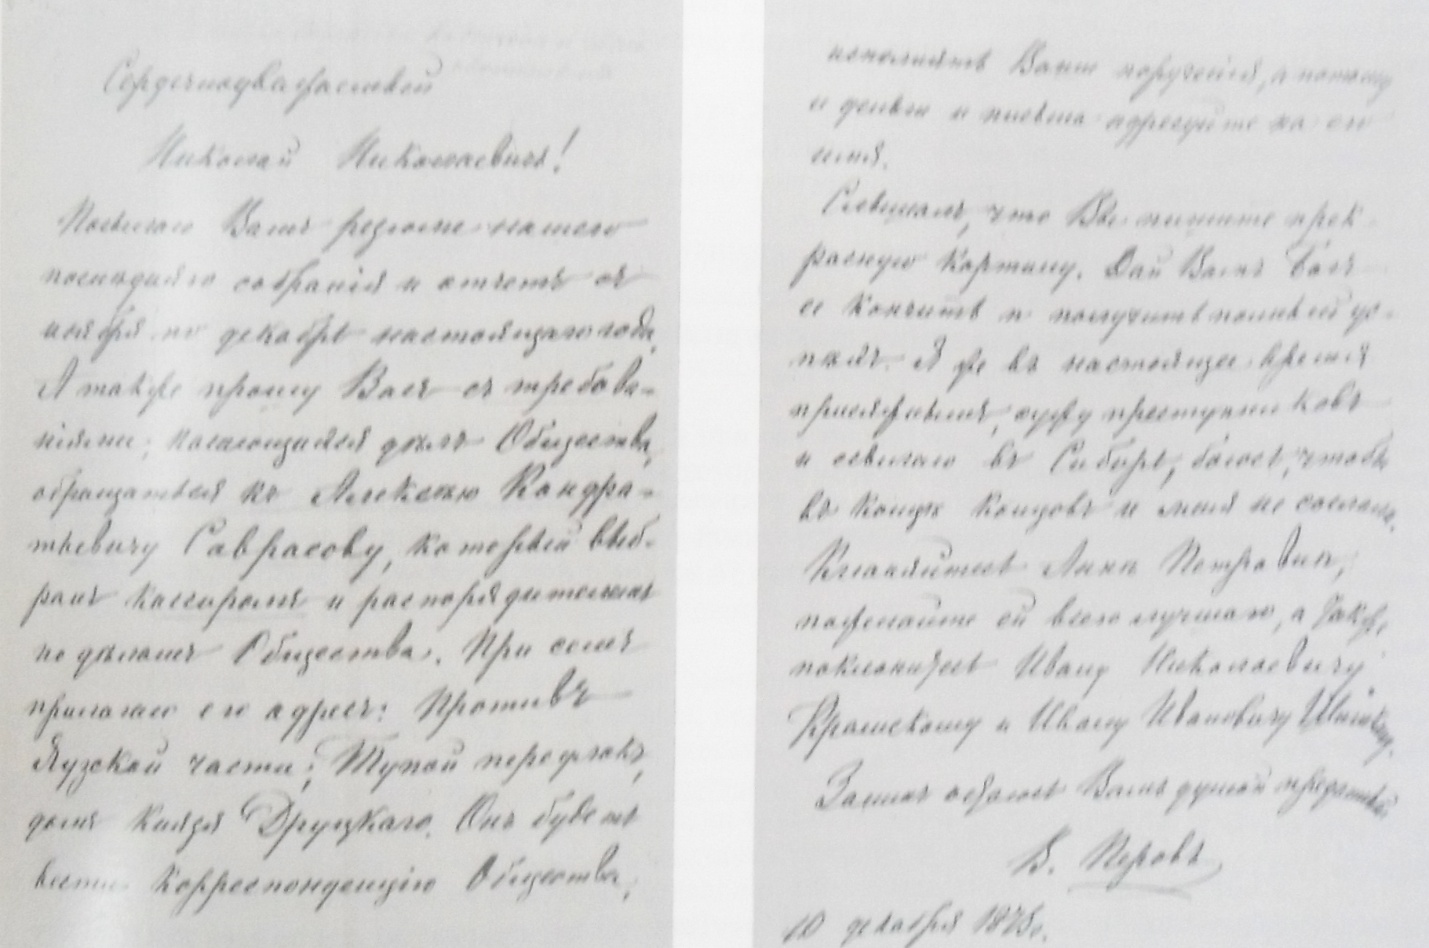 Сердечноуважаемый
Николай Николаевичъ!
Посылаю Вамъ резюме нашего
последняго собранія и отчетъ съ
ноября по декабрь настоящаго года.
Я также прошу Васъ съ требова-
ніями, касающимися дѣлъ Общества,
обращаться къ Алексѣю Кондра-
тьевичу Саврасову, который выб-
ранъ кассиромъ и распорядителемъ
по дѣламъ Общества. При семъ
прилагаю его адресъ: Противъ
Яузской части, Тупой переулокъ,
домъ Князя Друцкаго. Онъ будетъ
вести корреспонденцію Общества,
исполнять Ваши порученія, а потому
и деньги и письма адресуйте на его
имя.
Слышалъ, что Вы пишите прек-
расную картину. Дай Вамъ богъ
ее кончить и получить полный ус-
пѣхъ. Я же въ настоящее время
присяжнымъ, сужу преступниковъ
и ссылаю въ Сибирь, боюсь, чтобы
въ концѣ концовъ и меня не сослали.
Кланяйтесь Аннѣ Петровнѣ,
пожелайте ей всего лучшаго, а также
поклонитесь Ивану Николаевичу
Крамскому и Ивану Ивановичу Шишкину.
Засимъ остаюсь Вамъ душой преданный
В. Перовъ
10 декабря 1873г.